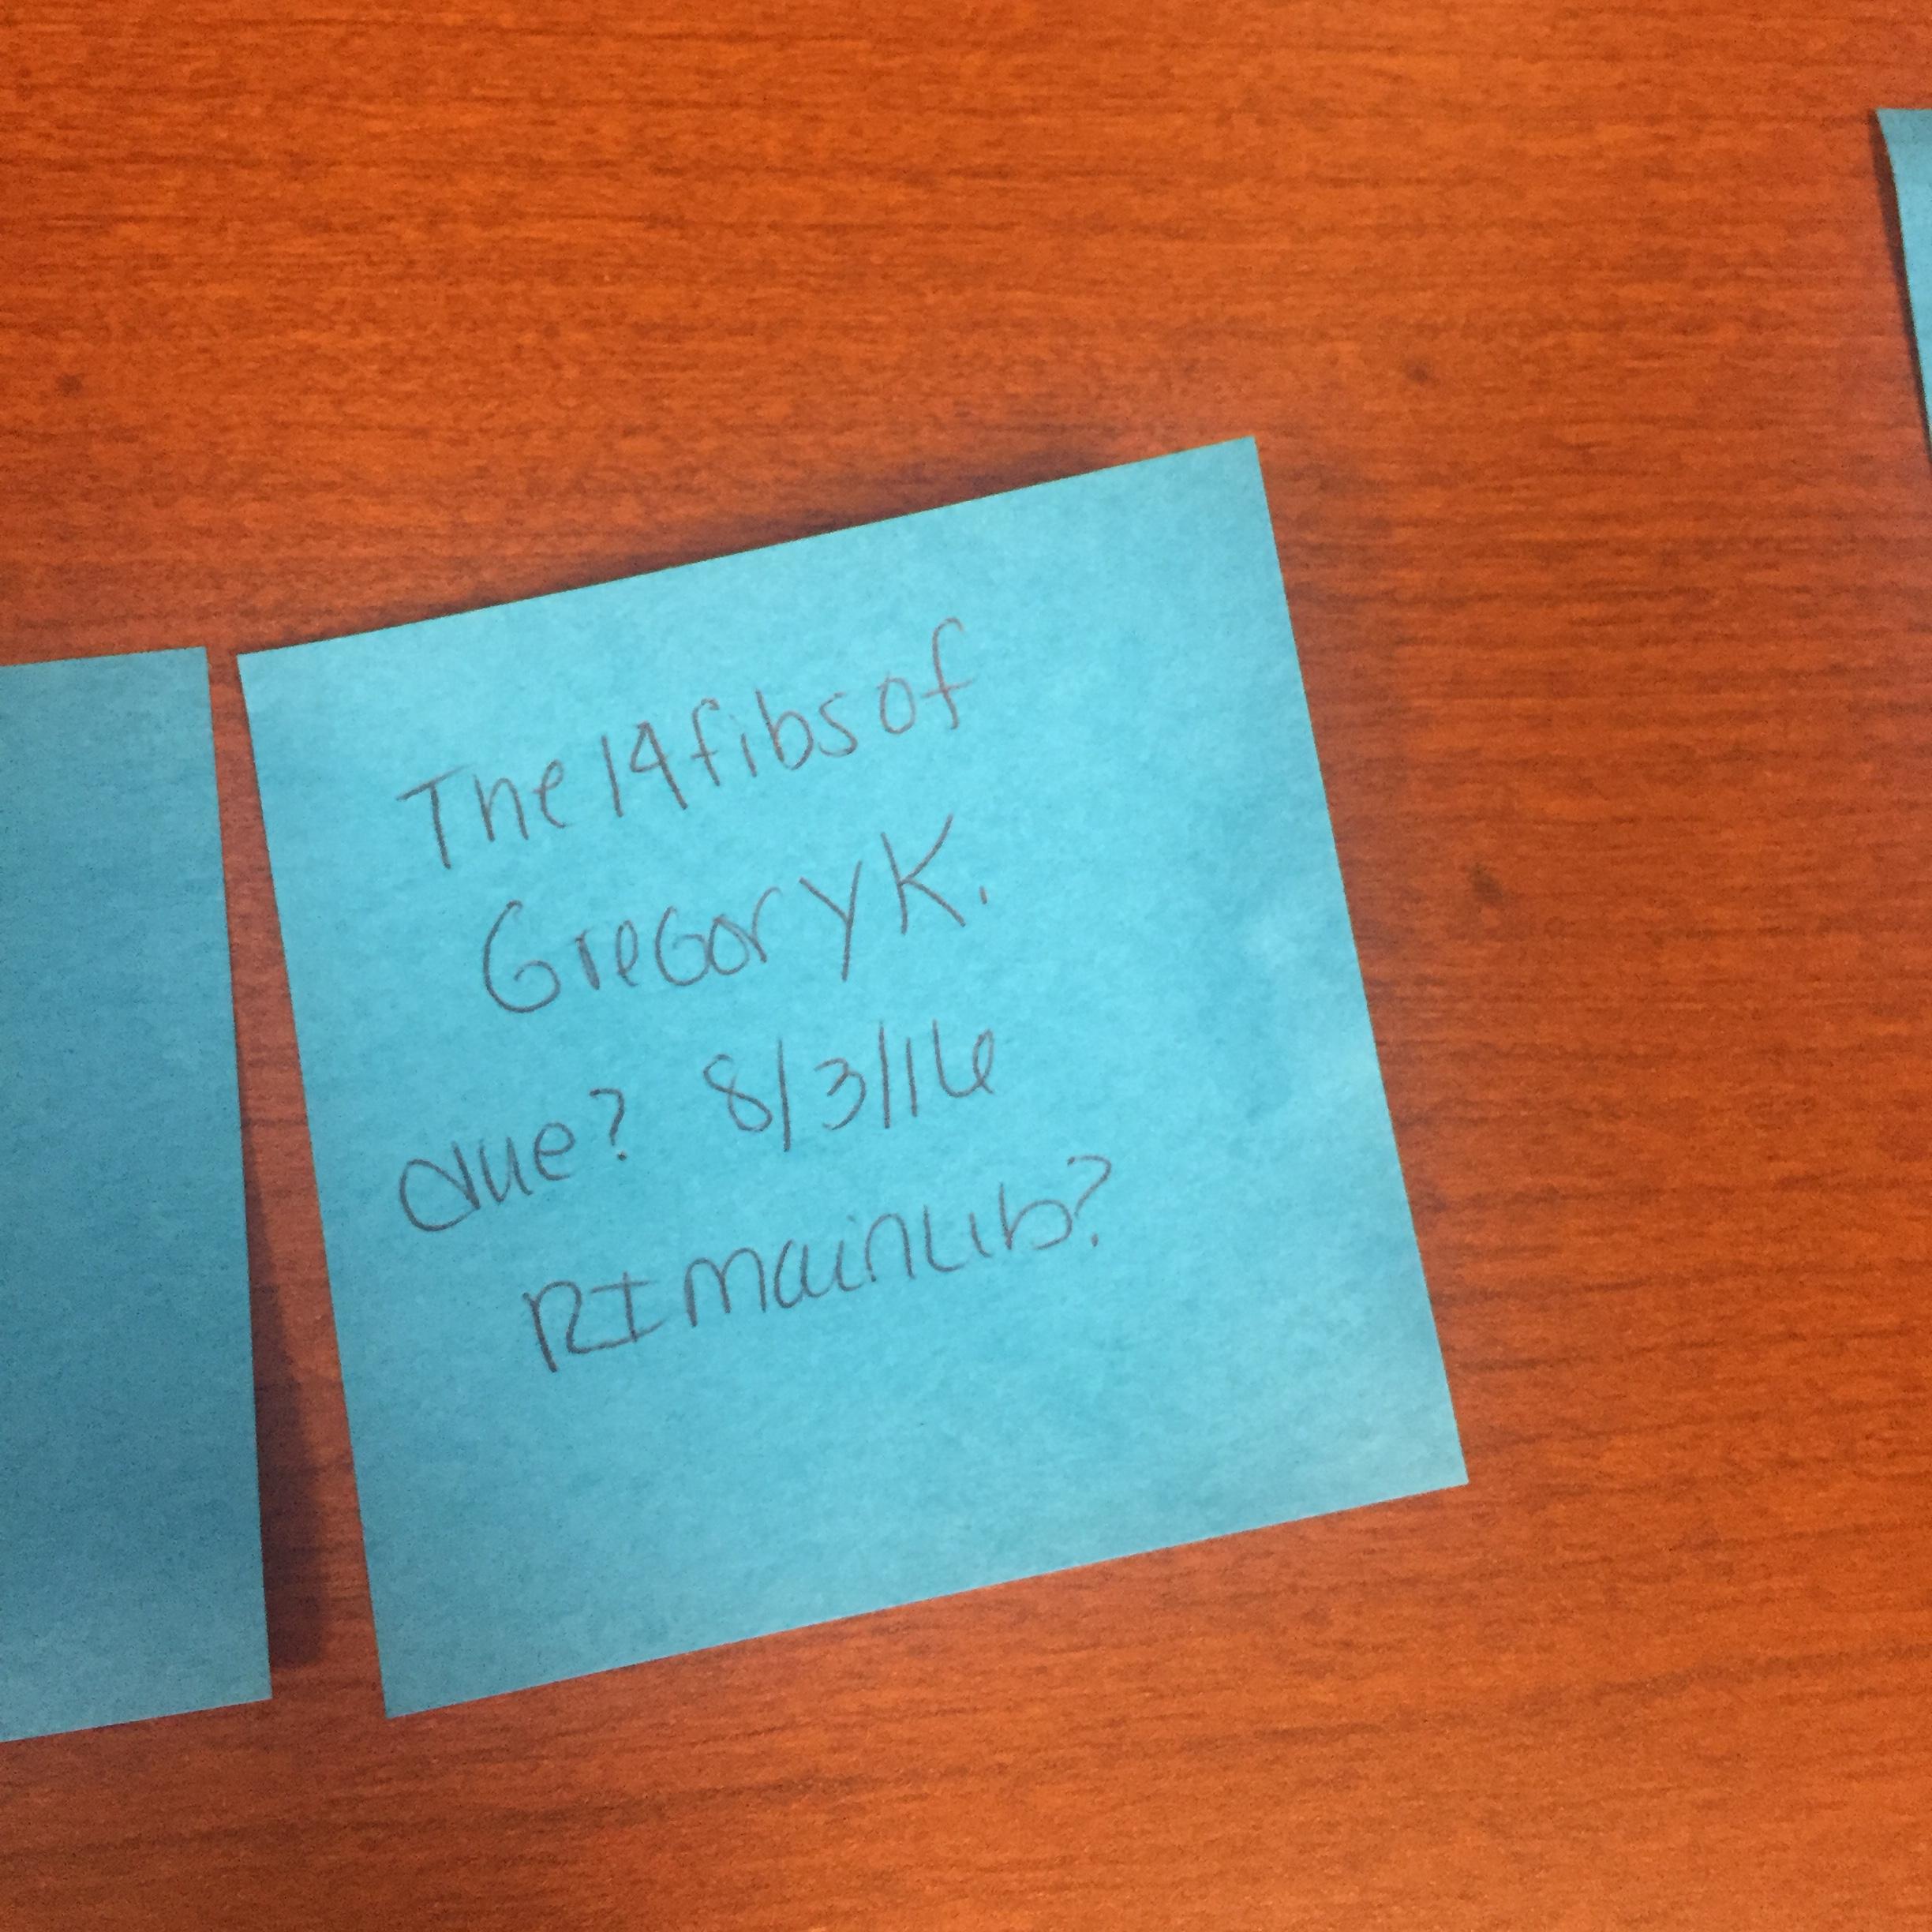 The 14 fibs of
Gregory K.
due? 8/31/16
RI main Lib?